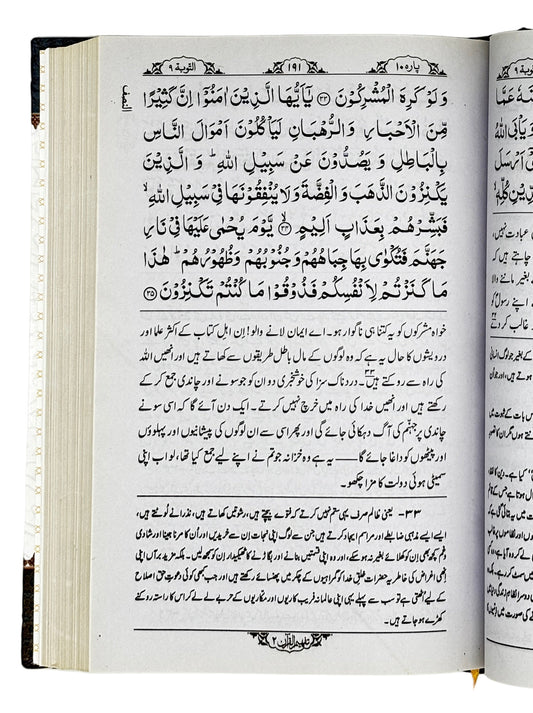 التوبة ۹
۱۹۱
پاره ۱۰
وَلَوْ كَرِهَ الْمُشْرِكُوْنَ ۳۳ يٰٓاَيُّهَا الَّذِيْنَ اٰمَنُوْٓا اِنَّ كَثِيْرًا
مِّنَ الْاَحْبَارِ وَالرُّهْبَانِ لَيَاْكُلُوْنَ اَمْوَالَ النَّاسِ
بِالْبَاطِلِ وَيَصُدُّوْنَ عَنْ سَبِيْلِ اللّٰهِ ؕ وَالَّذِيْنَ
يَكْنِزُوْنَ الذَّهَبَ وَالْفِضَّةَ وَلَا يُنْفِقُوْنَهَا فِيْ سَبِيْلِ اللّٰهِ ۙ
فَبَشِّرْهُمْ بِعَذَابٍ اَلِيْمٍ ۙ۳۴ يَّوْمَ يُحْمٰى عَلَيْهَا فِيْ نَارِ
جَهَنَّمَ فَتُكْوٰى بِهَا جِبَاهُهُمْ وَجُنُوْبُهُمْ وَظُهُوْرُهُمْ ؕ هٰذَا
مَا كَنَزْتُمْ لِاَنْفُسِكُمْ فَذُوْقُوْا مَا كُنْتُمْ تَكْنِزُوْنَ ۳۵
خواہ مشرکوں کو یہ کتنا ہی ناگوار ہو۔ اے ایمان لانے والو! اِن اہلِ کتاب کے اکثر علما اور
درویشوں کا حال یہ ہے کہ وہ لوگوں کے مال باطل طریقوں سے کھاتے ہیں اور انھیں اللہ
کی راہ سے روکتے ہیں۳۳۔ دردناک سزا کی خوشخبری دو ان کو جو سونے اور چاندی جمع کر کے
رکھتے ہیں اور انھیں خدا کی راہ میں خرچ نہیں کرتے۔ ایک دن آئے گا کہ اسی سونے
چاندی پر جہنم کی آگ دہکائی جائے گی اور پھر اسی سے ان لوگوں کی پیشانیوں اور پہلوؤں
اور پیٹھوں کو داغا جائے گا —— یہ ہے وہ خزانہ جو تم نے اپنے لیے جمع کیا تھا، لو اب اپنی
سمیٹی ہوئی دولت کا مزا چکھو۔
۳۳- یعنی ظالم صرف یہی ستم نہیں کرتے کہ فتوے بیچتے ہیں، رشوتیں کھاتے ہیں، نذرانے لُوٹتے ہیں،
ایسے ایسے مذہبی ضابطے اور مراسم ایجاد کرتے ہیں جن سے لوگ اپنی نجات اِن سے خریدیں اور اُن کا مرنا جینا اور شادی
وغم کچھ بھی اِن کو کھلائے بغیر نہ ہو سکے، اور وہ اپنی قسمتیں بنانے اور بگاڑنے کا ٹھیکیدار اِن کو سمجھ لیں۔ بلکہ مزید برآں اپنی
اِنھی اغراض کی خاطر یہ حضرات خلقِ خدا کو گمراہیوں کے چکر میں پھنسائے رکھتے ہیں اور جب کبھی کوئی دعوتِ حق اصلاح
کے لیے اُٹھتی ہے تو سب سے پہلے یہی اپنی عالمانہ فریب کاریوں اور مکاریوں کے حربے لے لے کر اس کا راستہ روکنے
کھڑے ہو جاتے ہیں۔
تفہیم القرآن ۲